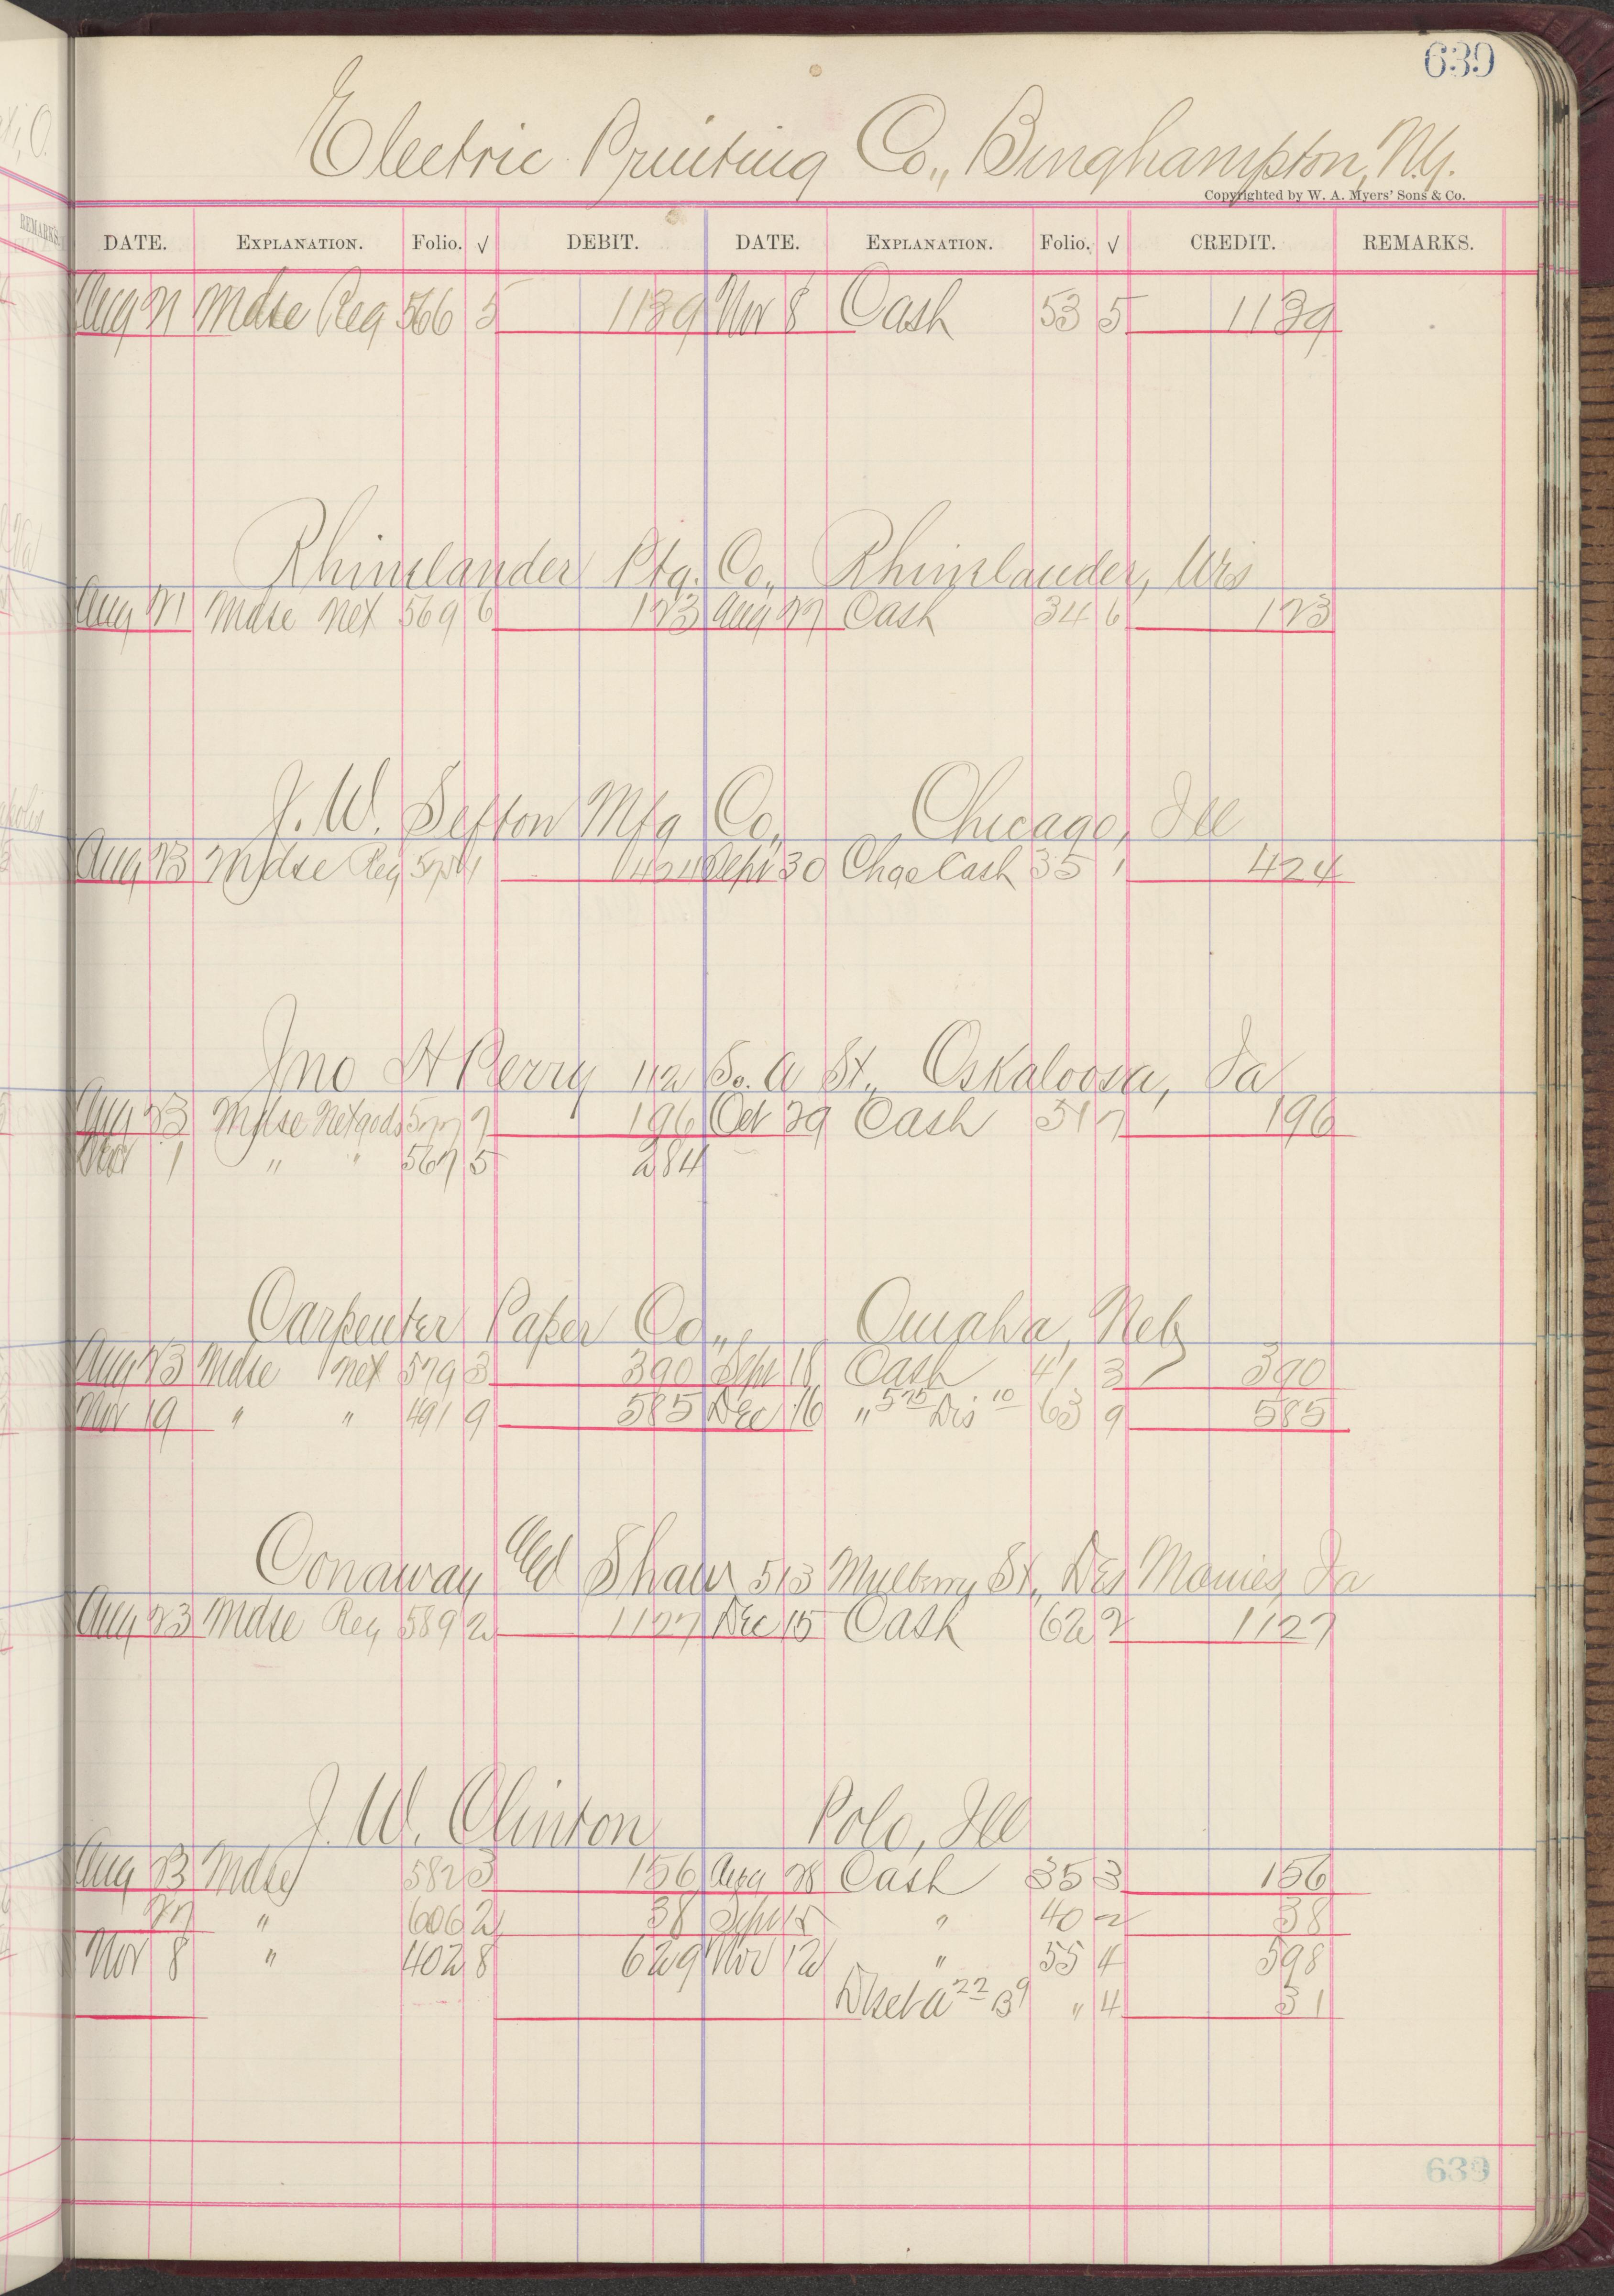 639
Electric Printing Co., Binghampton, N.Y.
Copyrighted by W. A. Myers' Sons & Co.
DATE. EXPLANATION. Folio. √ DEBIT. DATE. EXPLANATION. Folio. √ CREDIT. REMARKS.
Aug 21 Mdse Reg 566 5 1139 Nov 8 Cash 53 5 1139
Rhinelander Ptg. Co., Rhinelander, Wis
Aug 21 Mdse Net 569 6 123 Aug 27 Cash 34 6 123
J. W. Sefton Mfg Co., Chicago, Ill
Aug 23 Mdse Reg 1 424 Sept 30 Chge Cash 35 1 424
Jno H Perry 112 So. A St., Oskaloosa, Ia
Aug 23 Mdse Net gods 577 7 196 Oct 29 Cash 51 7 196
1 " " 567 5 284
Carpenter Paper Co., Omaha, Neb
Aug 23 Mdse Net 579 3 390 Sept 18 Cash 41 3 390
Nov 19 " " 491 9 585 Dec 16 " 575 Dis 10 63 9 585
Conaway & Shaw 513 Mulberry St., Des Monies, Ia
Aug 23 Mdse Reg 589 2 1127 Dec 15 Cash 62 2 1127
J. W. Clinton Polo, Ill
Aug 23 Mdse 582 3 156 Aug 28 Cash 35 3 156
27 " 606 2 38 Sept 15 " 40 2 38
Nov 8 " 402 8 629 Nov 12 " 55 4 598
22 B9 " 4 31
639